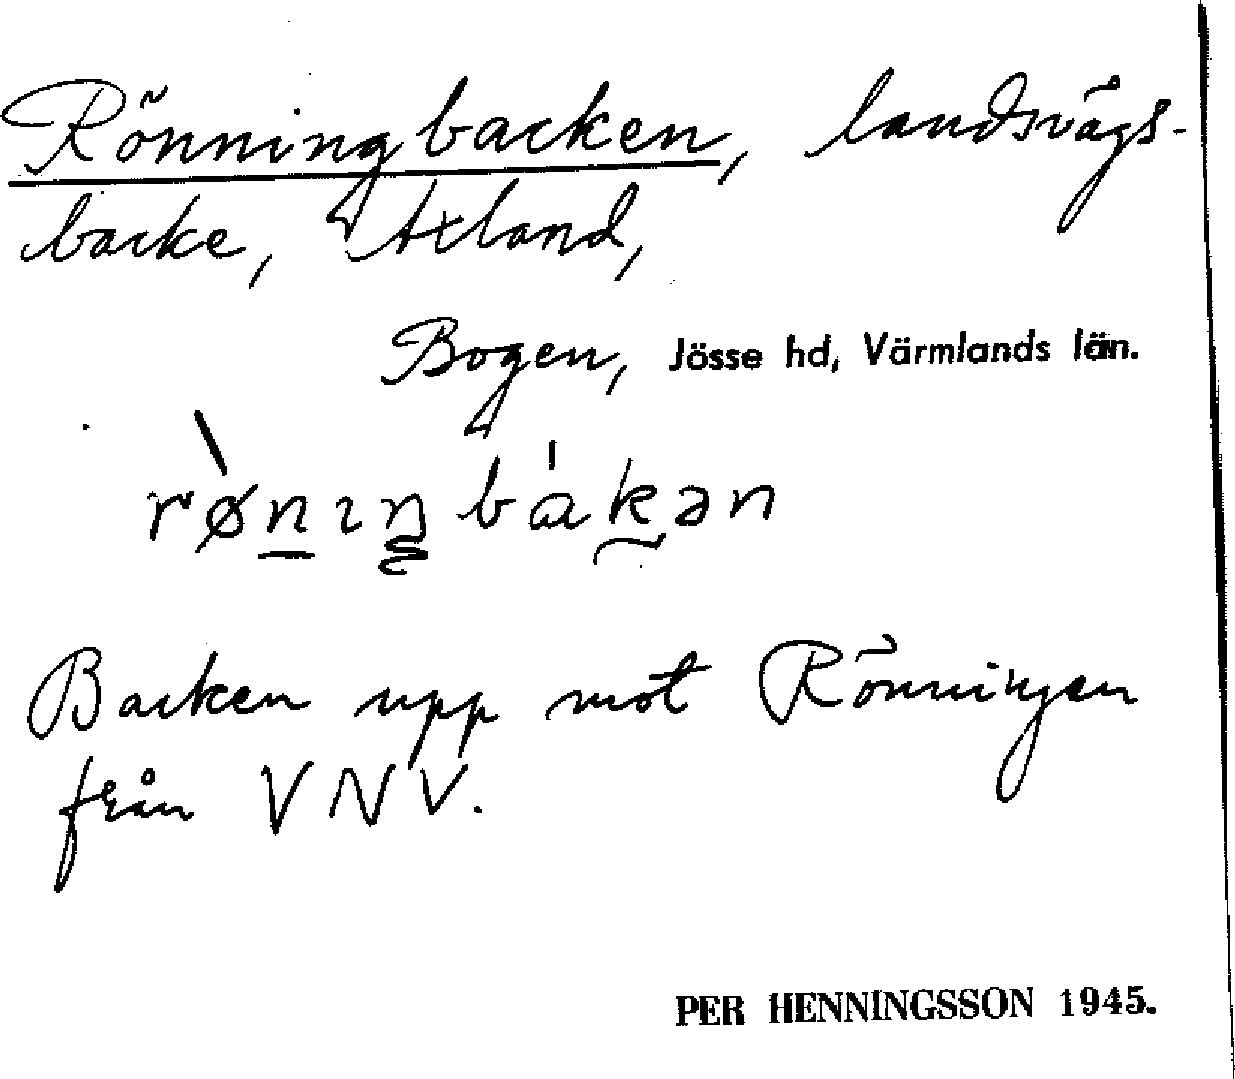 Rönningbacken, landsvägs-
backe, Axland,
Bogen, Jösse hd, Värmlands län.
rø̀nıŋbákən
Backen upp mot Rönningen
från VNV.
PER HENNINGSSON 1945.